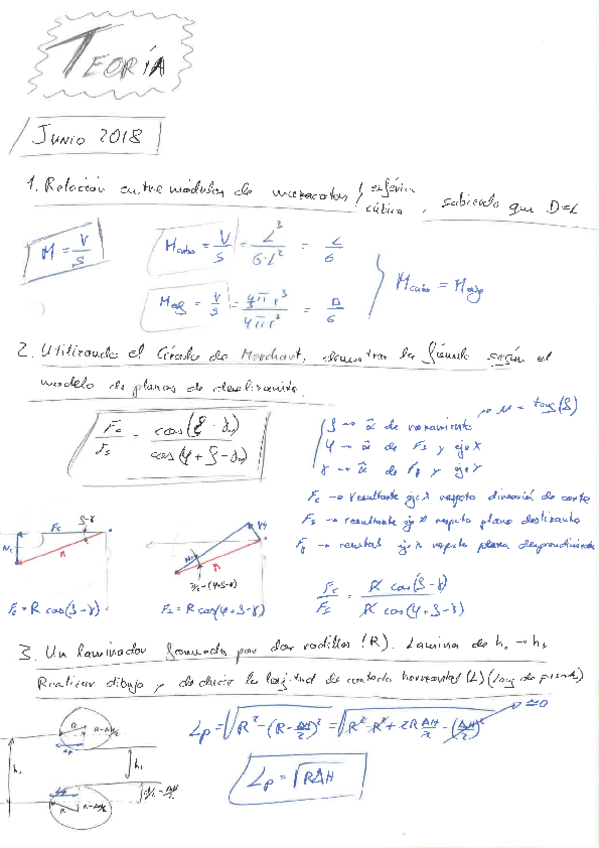 TEORÍA
JUNIO 2018
1. Relación entre módulos de mazarotas / esférica
cúbica, sabiendo que D=L
M = V/S
Mcubo = V/S = L³/6·L² = L/6
Mesf = V/S = 4/3 π r³/4 π r² = D/6
Mcubo = Mesf
2. Utilizando el Círculo de Merchant, demostrar la fórmula según el
modelo de planos de deslizamiento.
Fc/Fs = cos(ρ-γ)/cos(φ+ρ-γ)
→ μ = tang(ρ)
ρ → de rozamiento
φ → de Fs y eje X
γ → de Fγ y eje Y
Fc → resultante eje X respecto dirección de corte
Fs → resultante eje X respecto plano deslizante
Fγ → eje X respecto plano desprendimiento
ρ-γ
Fc
Nc
R
Fc = R cos(ρ-γ)
Fs = R cos(φ+ρ-γ)
Fc/Fs = R cos(ρ-γ)/R cos(φ+ρ-γ)
3. Un laminador formado por dos rodillos (R). Lámina de h₀ → h₁
Realizar dibujo y deducir la longitud de contacto horizontal (L) (long de prensa)
Lp = √R² - (R - ΔH/2)² = √R² - R² + 2R ΔH/2 - (ΔH/2)² ≈0
Lp = √RΔH
R
R-ΔH/2
Lp
h₀
h₁
Lp
R
R-ΔH/2